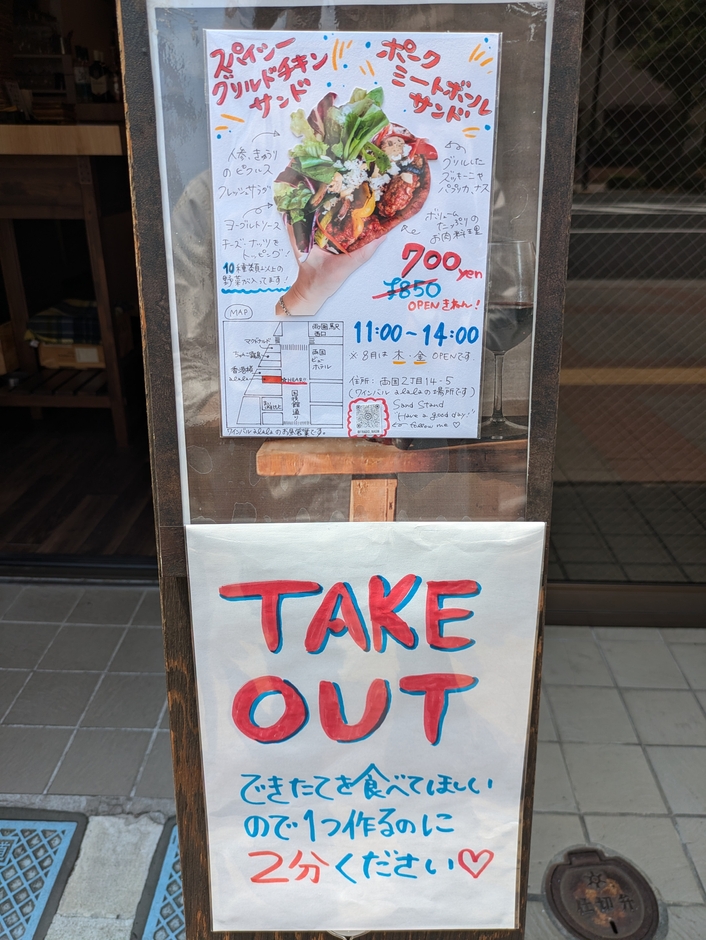 スパイシー
グリルドチキン
サンド
ポーク
ミートボール
サンド
人参、きゅうり
のピクルス
フレッシュサラダ
ヨーグルトソース
チーズ・ナッツを
トッピング!
10種類以上の
野菜が入ってます!
グリルした
ズッキーニや
パプリカ、ナス
ボリューム
たっぷりの
お肉料理
700yen
¥850
OPENきねん!
11:00~14:00
※ 8月は 木・金 OPENです
MAP
両国駅
西口
マクドナルド
ちゃんこ霧島
両国
ビュー
ホテル
香港橋
alala
国技館通り
ワインバルalalaのお昼営業です。
住所: 両国2丁目14-5
(ワインバル alalaの場所です)
Sand Stand
"Have a good day:)"
follow me ♡
TAKE
OUT
できたてを食べてほしい
ので1つ作るのに
2分ください♡